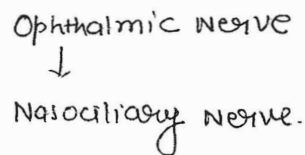 Ophthalmic nerve
↓
Nasociliary nerve.